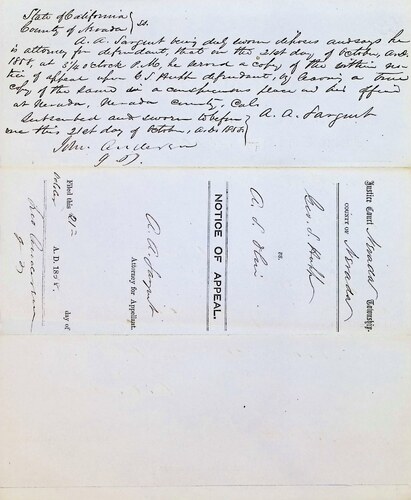 State of California
County of Nevada } ss.
A. A. Sargent being duly sworn deposes and says he
is attorney for defendant, that on the 21st day of October, A.D.
1858, at 3½ o'clock P.M. he served a copy of the within no-
tice of appeal upon G S Hupp defendant, by leaving a true
copy of the same in a conspicuous place in his office
at Nevada, Nevada County, Cal.
Subscribed and sworn to before } A. A. Sargent
me this 21st day of October, A.D. 1858.
John Anderson
J. P.
Justice Court Nevada Township.
COUNTY OF Nevada
Geo. S. Hupp
vs.
A. S.
NOTICE OF APPEAL.
A. A. Sargent
Attorney for Appellant.
Filed this 21st day of
October A. D. 1858.
Anderson
J. P.